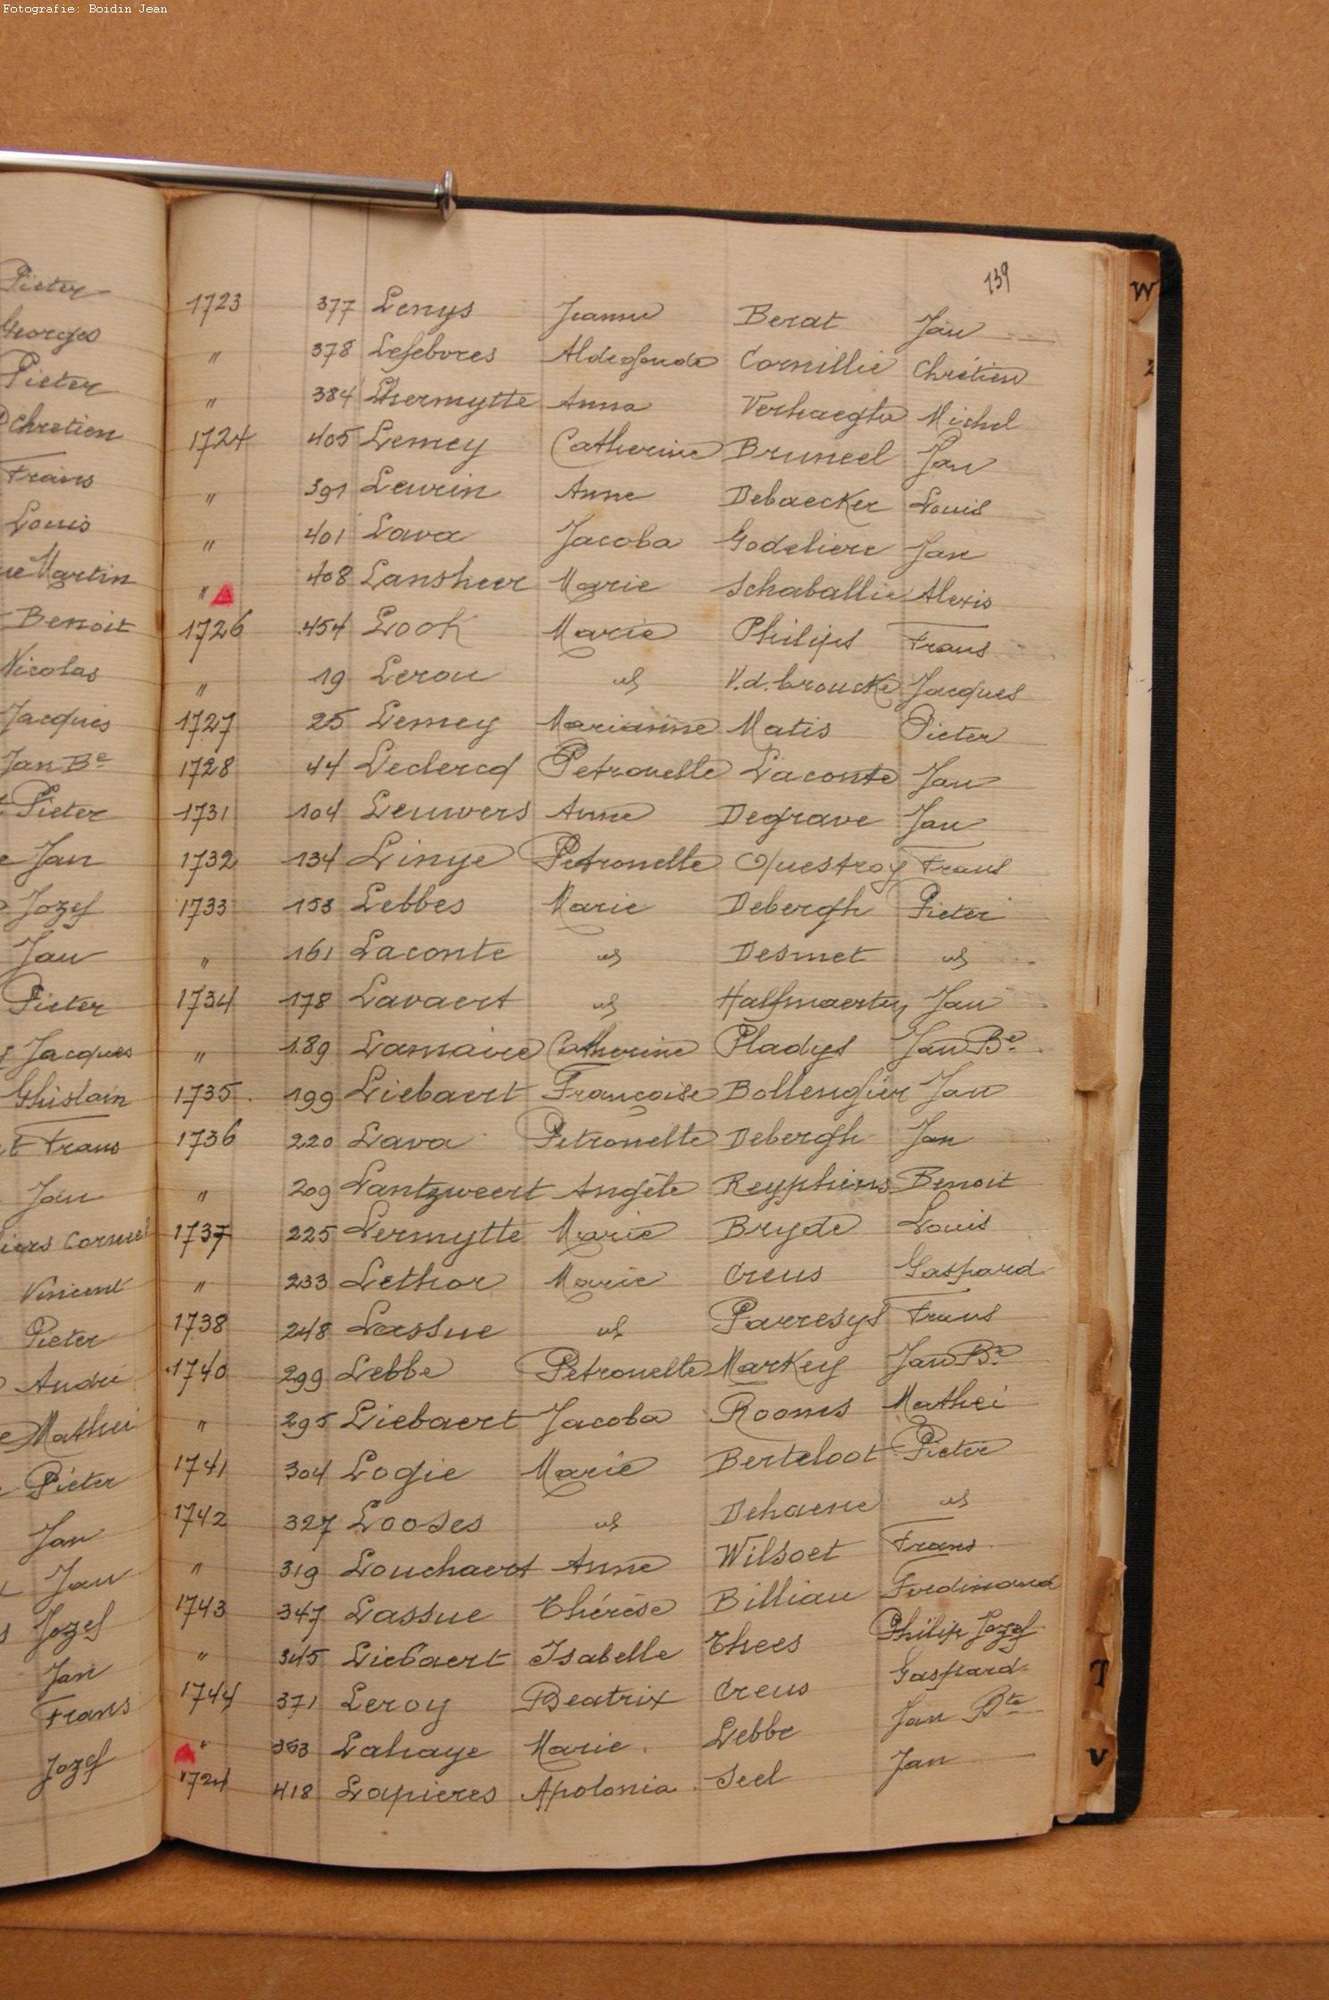 Fotografie: Boidin Jean
139
W
2
T
V
Pieter
Georges
Pieter
Chretien
Frans
Louis
Martin
Benoit
Nicolas
Jacques
Jan Bte
Pieter
Jan
Jozef
Jan
Pieter
Jacques
Ghislain
Frans
Jan
Corneel
Vincent
Pieter
André
Mathei
Pieter
Jan
Jan
Jozef
Jan
Frans
Jozef
1723 377 Lenys Jeanne Berat Jan
" 378 Lefebvres Aldegonde Cornillie Chrétien
" 384 Lhermytte Anna Verhaeghe Michel
1724 405 Lemey Catherine Bruneel Jan
" 391 Leurin Anne Debaecker Louis
" 401 Lava Jacoba Godeliere Jan
" 408 Lansheer Marie Schaballie Alexis
1726 454 Look Marie Philips Frans
" 19 Lerou id V.d.broucke Jacques
1727 25 Lemey Marianne Matis Pieter
1728 44 Leclercq Petronelle Laconte Jan
1731 104 Leuwers Anne Degrave Jan
1732 134 Linye Petronelle Questroy Frans
1733 153 Lebbes Marie Debergh Pieter
" 161 Laconte id Desmet id
1734 178 Lavaert id Halfmaerten Jan
" 189 Lamaire Catherine Pladys Jan Bte
1735 199 Liebaert Françoise Bollengier Jan
1736 220 Lava Petronelle Debergh Jan
" 209 Lantzweert Angèle Reyphins Benoit
1737 225 Lermytte Marie Bryde Louis
" 233 Lethor Marie Creus Gaspard
1738 248 Lassue id Parresys Frans
1740 299 Lebbe Petronelle Markey Jan Bte
" 295 Liebaert Jacoba Rooms Mathei
1741 304 Logie Marie Berteloot Pieter
1742 327 Looses id Dehaene id
" 319 Louchaert Anne Wilsoet Frans
1743 347 Lassue Thérèse Billiau Ferdinand
" 345 Liebaert Isabelle Thees Philip Jozef
1744 371 Leroy Beatrix Creus Gaspard
" 353 Lahaye Marie Lebbe Jan Bte
1724 418 Lapieres Apolonia Seel Jan